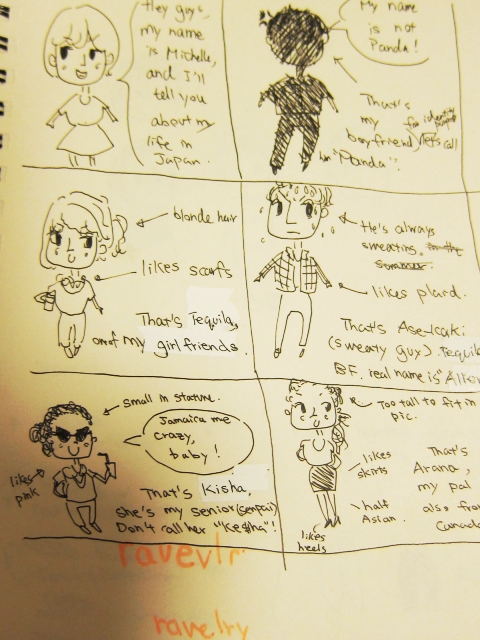 Hey guys,
my name
is Michelle,
and I'll
tell you
about my
life in
Japan.
My name
is not
Panda!
That's
my for identity
boyfriend, let's call
him "Panda".
blonde hair
likes scarfs
That's Tequila,
one of my girlfriends.
He's always
sweating.
likes plard.
That's Ase-kaki
(sweaty guy). Tequila
BF. real name is
small in stature.
Jamaica me
crazy,
baby!
likes
pink
That's Kisha,
she's my senior (senpai)
Don't call her "Ke$ha"!
Too tall to fit in
pic.
likes
skirts
half
Asian.
likes
heels
That's
Arana,
my pal
also from
Canada
ravevlr
ravelry